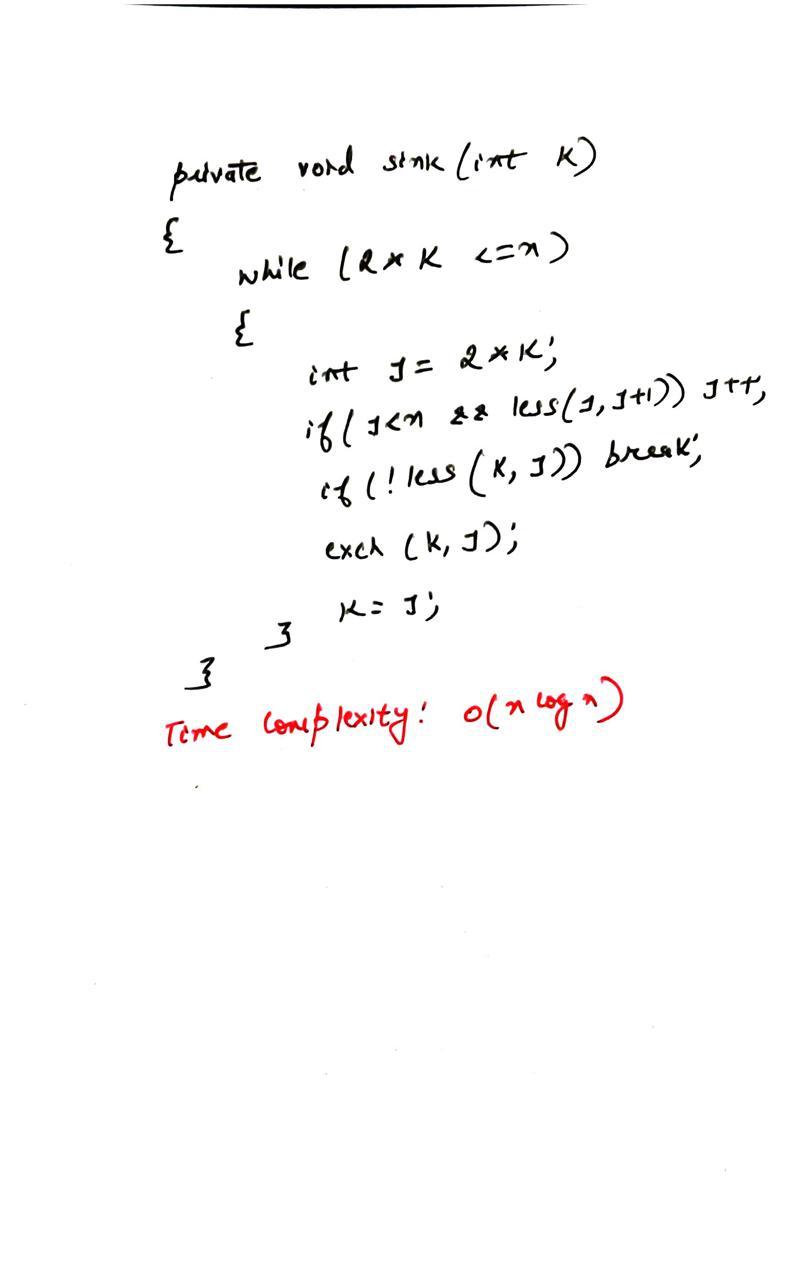 private void sink (int K)
{
while (2 * K <= n)
{
int J = 2 * K;
if (J<n && less(J, J+1)) J++;
if (! less (K, J)) break;
exch (K, J);
K = J;
}
}
Time complexity: O(n log n)